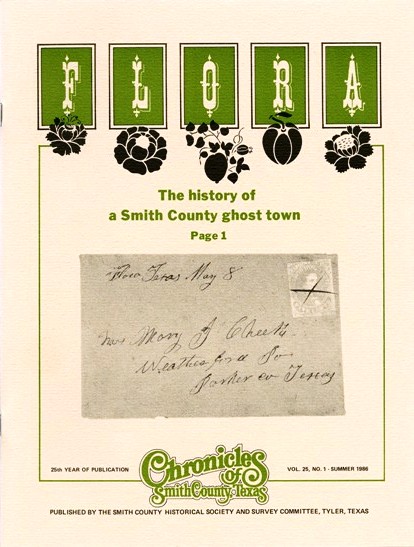 FLORA
The history of
a Smith County ghost town
Page 1
Flora Texas May 8
Mrs Mary J Cheek
Weatherford Po
Parker co Texas
25th YEAR OF PUBLICATION
Chronicles
of
Smith County, Texas
VOL. 25, NO. 1 - SUMMER 1986
PUBLISHED BY THE SMITH COUNTY HISTORICAL SOCIETY AND SURVEY COMMITTEE, TYLER, TEXAS